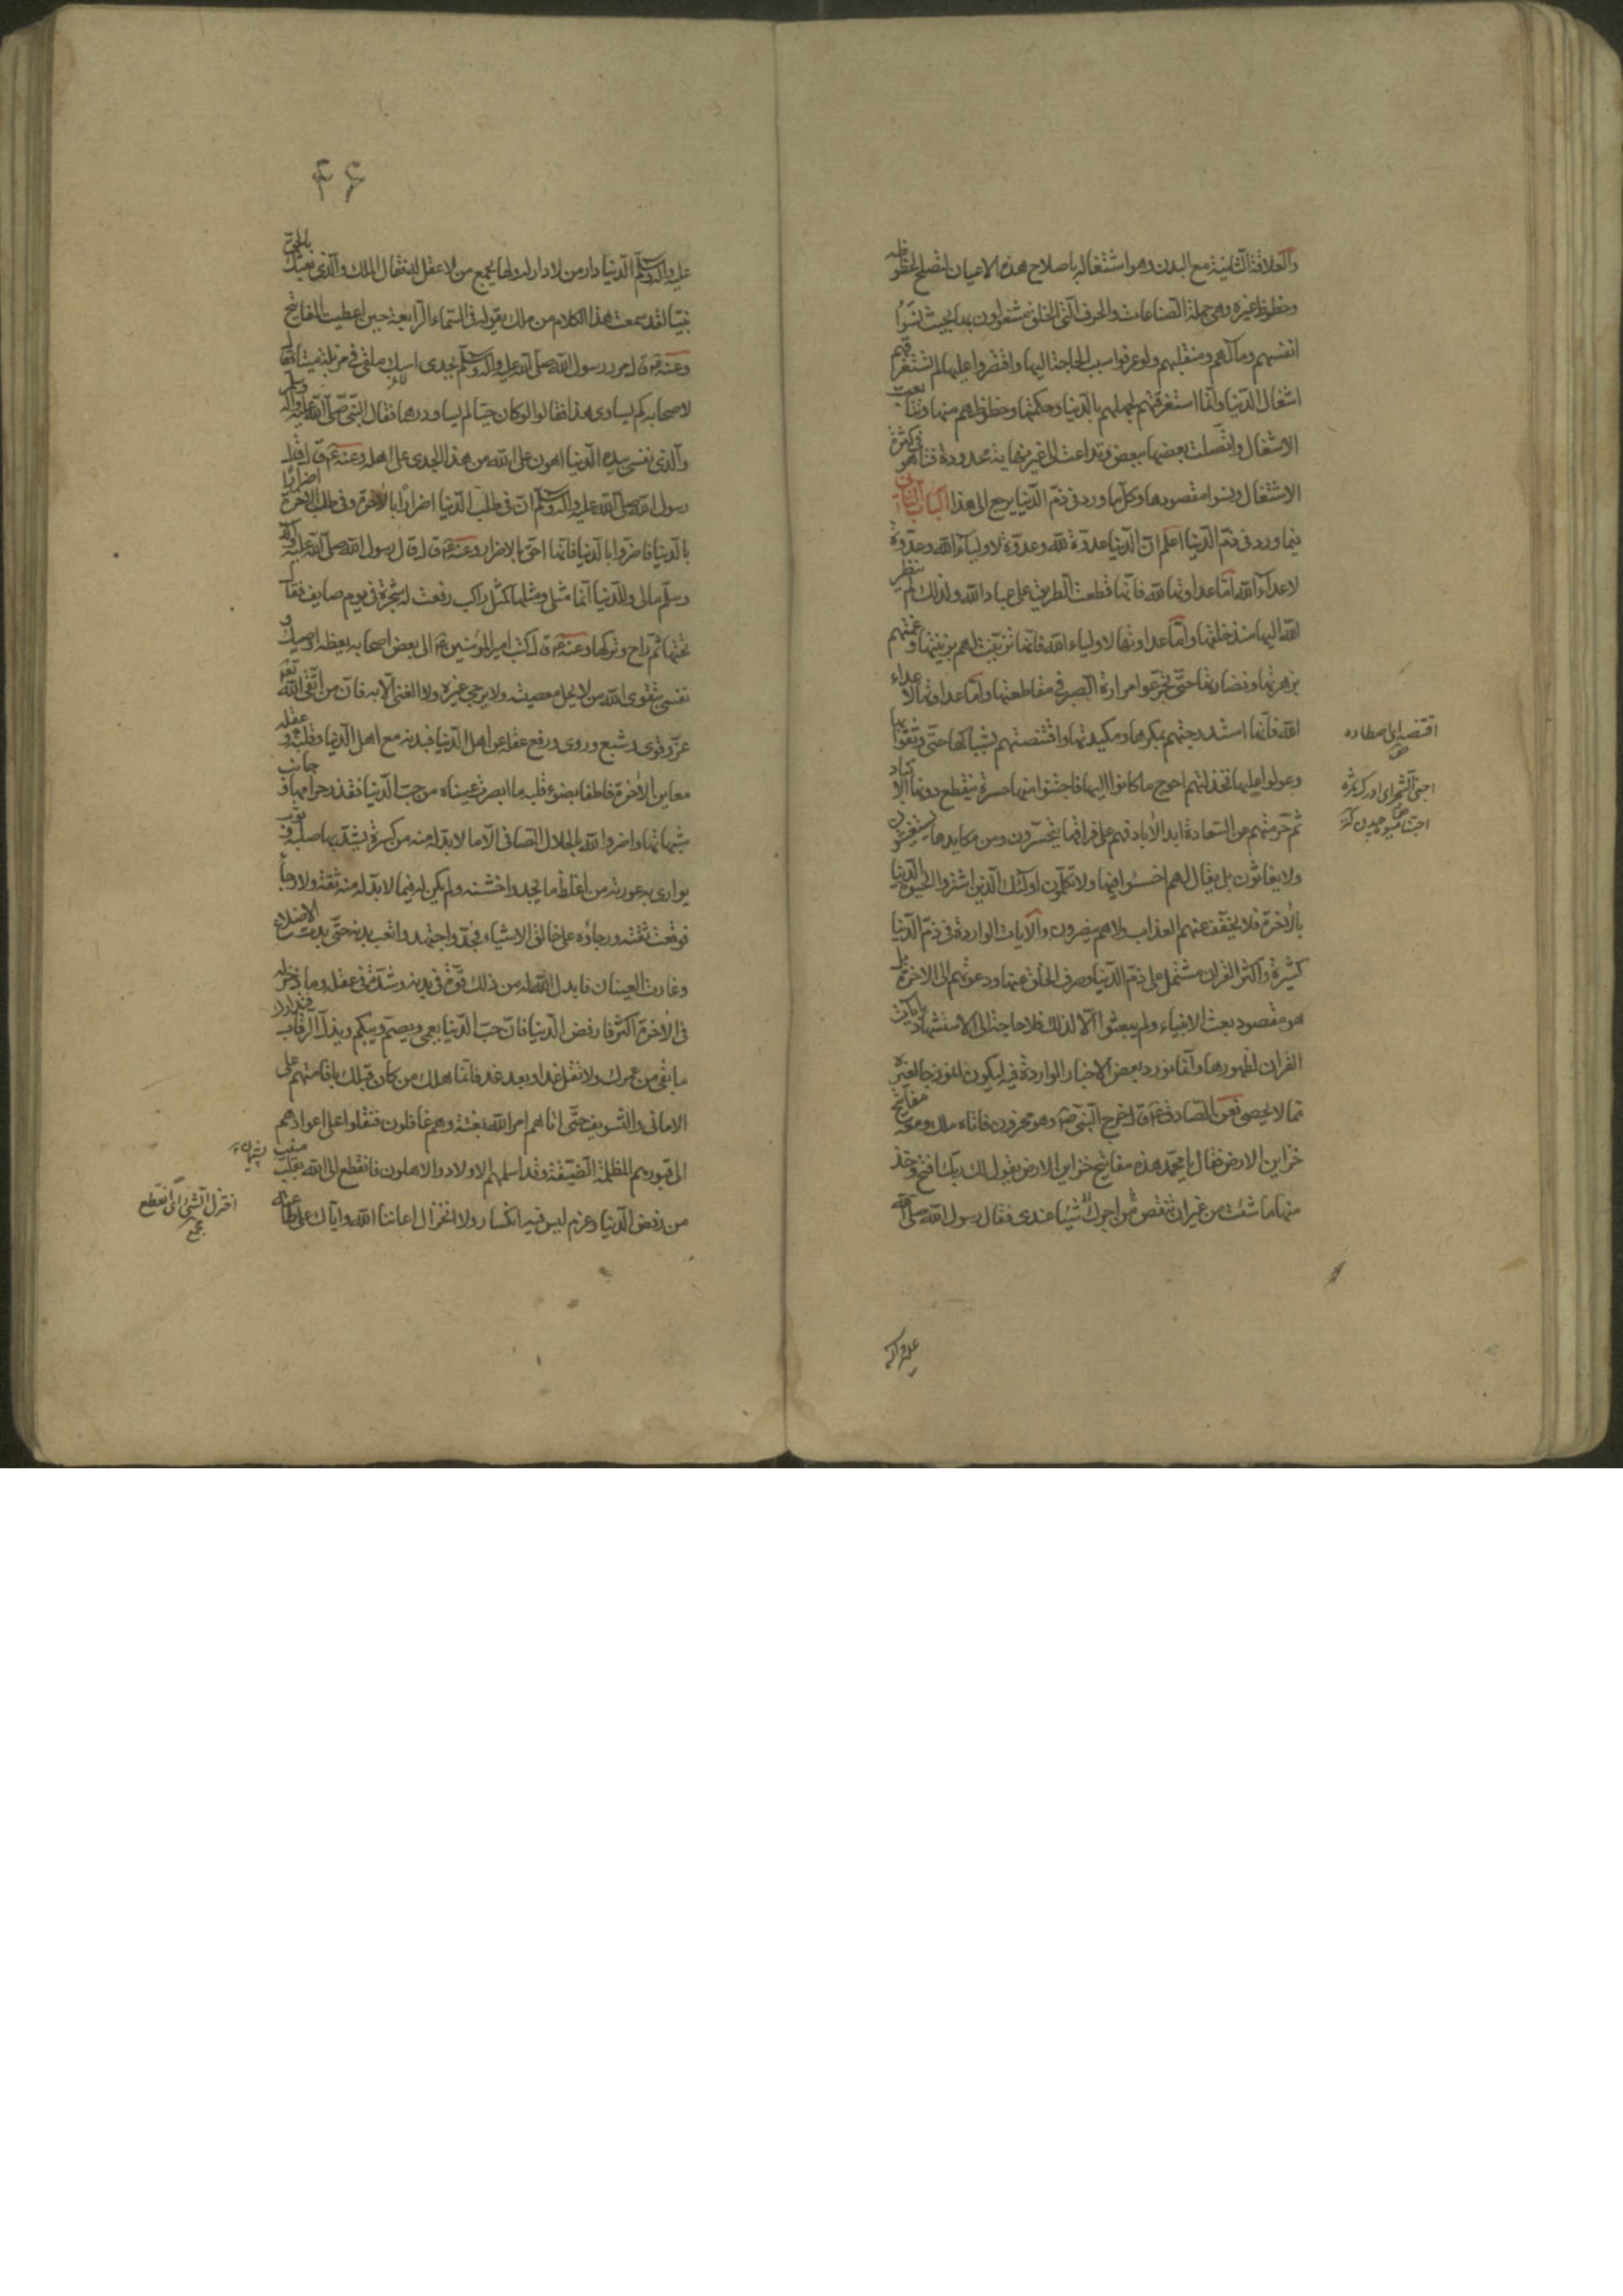 والعلاقة الثانية مع البدن وهو اشتغاله باصلاح هذه الاعيان لتصلح لحظوظه
وحظوظ غيره وهى جملة الصناعات والحرف التى الخلق مشغولون بها بحيث نسوا
انفسهم ومآلهم ومنقلبهم ولو عرفوا سبب الحاجة اليها واقتصروا عليها لم تستغرقهم
اشغال الدنيا وانما استغرقتهم لجهلهم بالدنيا وحكمتها وحظوظهم منها وتتابعت
الاشغال واتصلت بعضها ببعض وتداعت الى غير نهاية محدودة فتاهو فى كثرة
الاشتغال ونسوا مقصودها وكل ما ورد فى ذم الدنيا يرجع الى هذا الباب الثانى
فيما ورد فى ذم الدنيا اعلم ان الدنيا عدوة لله وعدوة لاولياء الله وعدوة
لاعداء الله اما عداوتها لله فانها قطعت الطريق على عباد الله ولذلك لم ينظر
الله اليها منذ خلقها واما عداوتها لاولياء الله فانها تزينت لهم بزينتها وعمتهم
بزهرتها ونضارتها حتى تجرعوا مرارة الصبر فى مقاطعتها واما عداوتها لاعداء
الله فانها استدرجتهم بمكرها ومكيدتها واقتنصتهم بشباكها حتى وثقوا بها
وعولوا عليها فخذلتهم احوج ما كانوا اليها فاجتنوا منها حسرة ينقطع دونها الاكباد
ثم حرمتهم عن السعادة ابد الاباد فهم على فراقها يتحسرون ومن مكايدها يستغيثون
ولا يغاثون بل يقال لهم اخسئوا فيها ولا تكلمون اولئك الذين اشتروا الحيوة الدنيا
بالاخرة فلا يخفف عنهم العذاب ولا هم ينصرون والايات الواردة فى ذم الدنيا
كثيرة واكثر القران مشتمل على ذم الدنيا وصرف الخلق عنها ودعوتهم الى الاخرة بل
هو مقصود بعث الانبياء ولم يبعثوا الا لذلك فلا حاجة الى الاستشهاد بايات
القران لظهورها وانما نورد بعض الاخبار الواردة فيه ليكون انموذجا لغيره
مما لا يحصى فعن الصادق ع قال خرج النبى ص وهو محزون فاتاه ملك ومعه مفاتيح
خزاين الارض فقال يا محمد هذه مفاتيح خزاين الارض يقول لك ربك افتح وخذ
منها ما شئت من غير ان تنقص من اجرك شيئا عندى فقال رسول الله صلى الله
عليه واله
اقتنصه اى اصطاده
اجنى الشجر اى ادرك ثمره
اجتنا ميوه چيدن كنز
۴۶
عليه واله وسلم الدنيا دار من لا دار له ولها يجمع من لا عقل له فقال الملك والذى بعثك بالحق
نبيا لقد سمعت هذا الكلام من ملك يقوله فى السماء الرابعة حين اعطيت المفاتيح
وعنه ع قال مر رسول الله صلى الله عليه واله وسلم بجدى اسك ملقى فى مزبلة ميتا فقال
لاصحابه كم يساوى هذا فقالوا لو كان حيا لم يساو درهما فقال النبى صلى الله عليه واله وسلم
والذى نفسى بيده الدنيا اهون على الله من هذا الجدى على اهله وعنه ع قال قال
رسول الله صلى الله عليه واله وسلم ان فى طلب الدنيا اضرارا بالاخرة وفى طلب الاخرة اضرارا
بالدنيا فاضروا بالدنيا فانها احق بالاضرار وعنه ع قال قال رسول الله صلى الله عليه واله
وسلم مالى وللدنيا انما مثلى ومثلها كمثل راكب رفعت له شجرة فى يوم صايف فقال
تحتها ثم راح وتركها وعنه ع قال كتب امير المؤمنين ع الى بعض اصحابه يعظه اوصيك و
نفسى بتقوى الله من لا يحل معصيته ولا يرجى غيره ولا الغنى الا به فان من اتقى الله
عز وقوى وشبع وروى ورفع عقله عن اهل الدنيا فبدنه مع اهل الدنيا وقلبه وعقله
معاين الاخرة فاطفا بضوء قلبه ما ابصرت عيناه من حب الدنيا فقذر حرامها وجانب
شبهاتها واضر والله بالحلال الصافى الا ما لا بد له منه من كسرة يشد بها صلبه وثوب
يوارى به عورته من اغلظ ما يجد واخشنه ولم يكن له فيما لا بد له منه ثقة ولا رجاء
فوقعت ثقته ورجاؤه على خالق الاشياء فجد واجتهد واتعب بدنه حتى بدت الاضلاع
وغارت العينان فابدل الله له من ذلك قوة فى بدنه وشدة فى عقله وما ذخر له
فى الاخرة اكثر فارفض الدنيا فان حب الدنيا يعمى ويصم ويبكم ويذل الرقاب فتدارك
ما بقى من عمرك ولا تقل غدا وبعد غد فانما هلك من كان قبلك باقامتهم على
الامانى والتسويف حتى اتاهم امر الله بغتة وهم غافلون فنقلوا على اعوادهم
الى قبورهم المظلمة الضيقة وقد اسلمهم الاولاد والاهلون فانقطع الى الله بقلب منيب
من رفض الدنيا وعزم ليس فيه انكسار ولا انخزال اعاننا الله واياك على طاعته
انخزل الشئ اى انقطع
مجمع